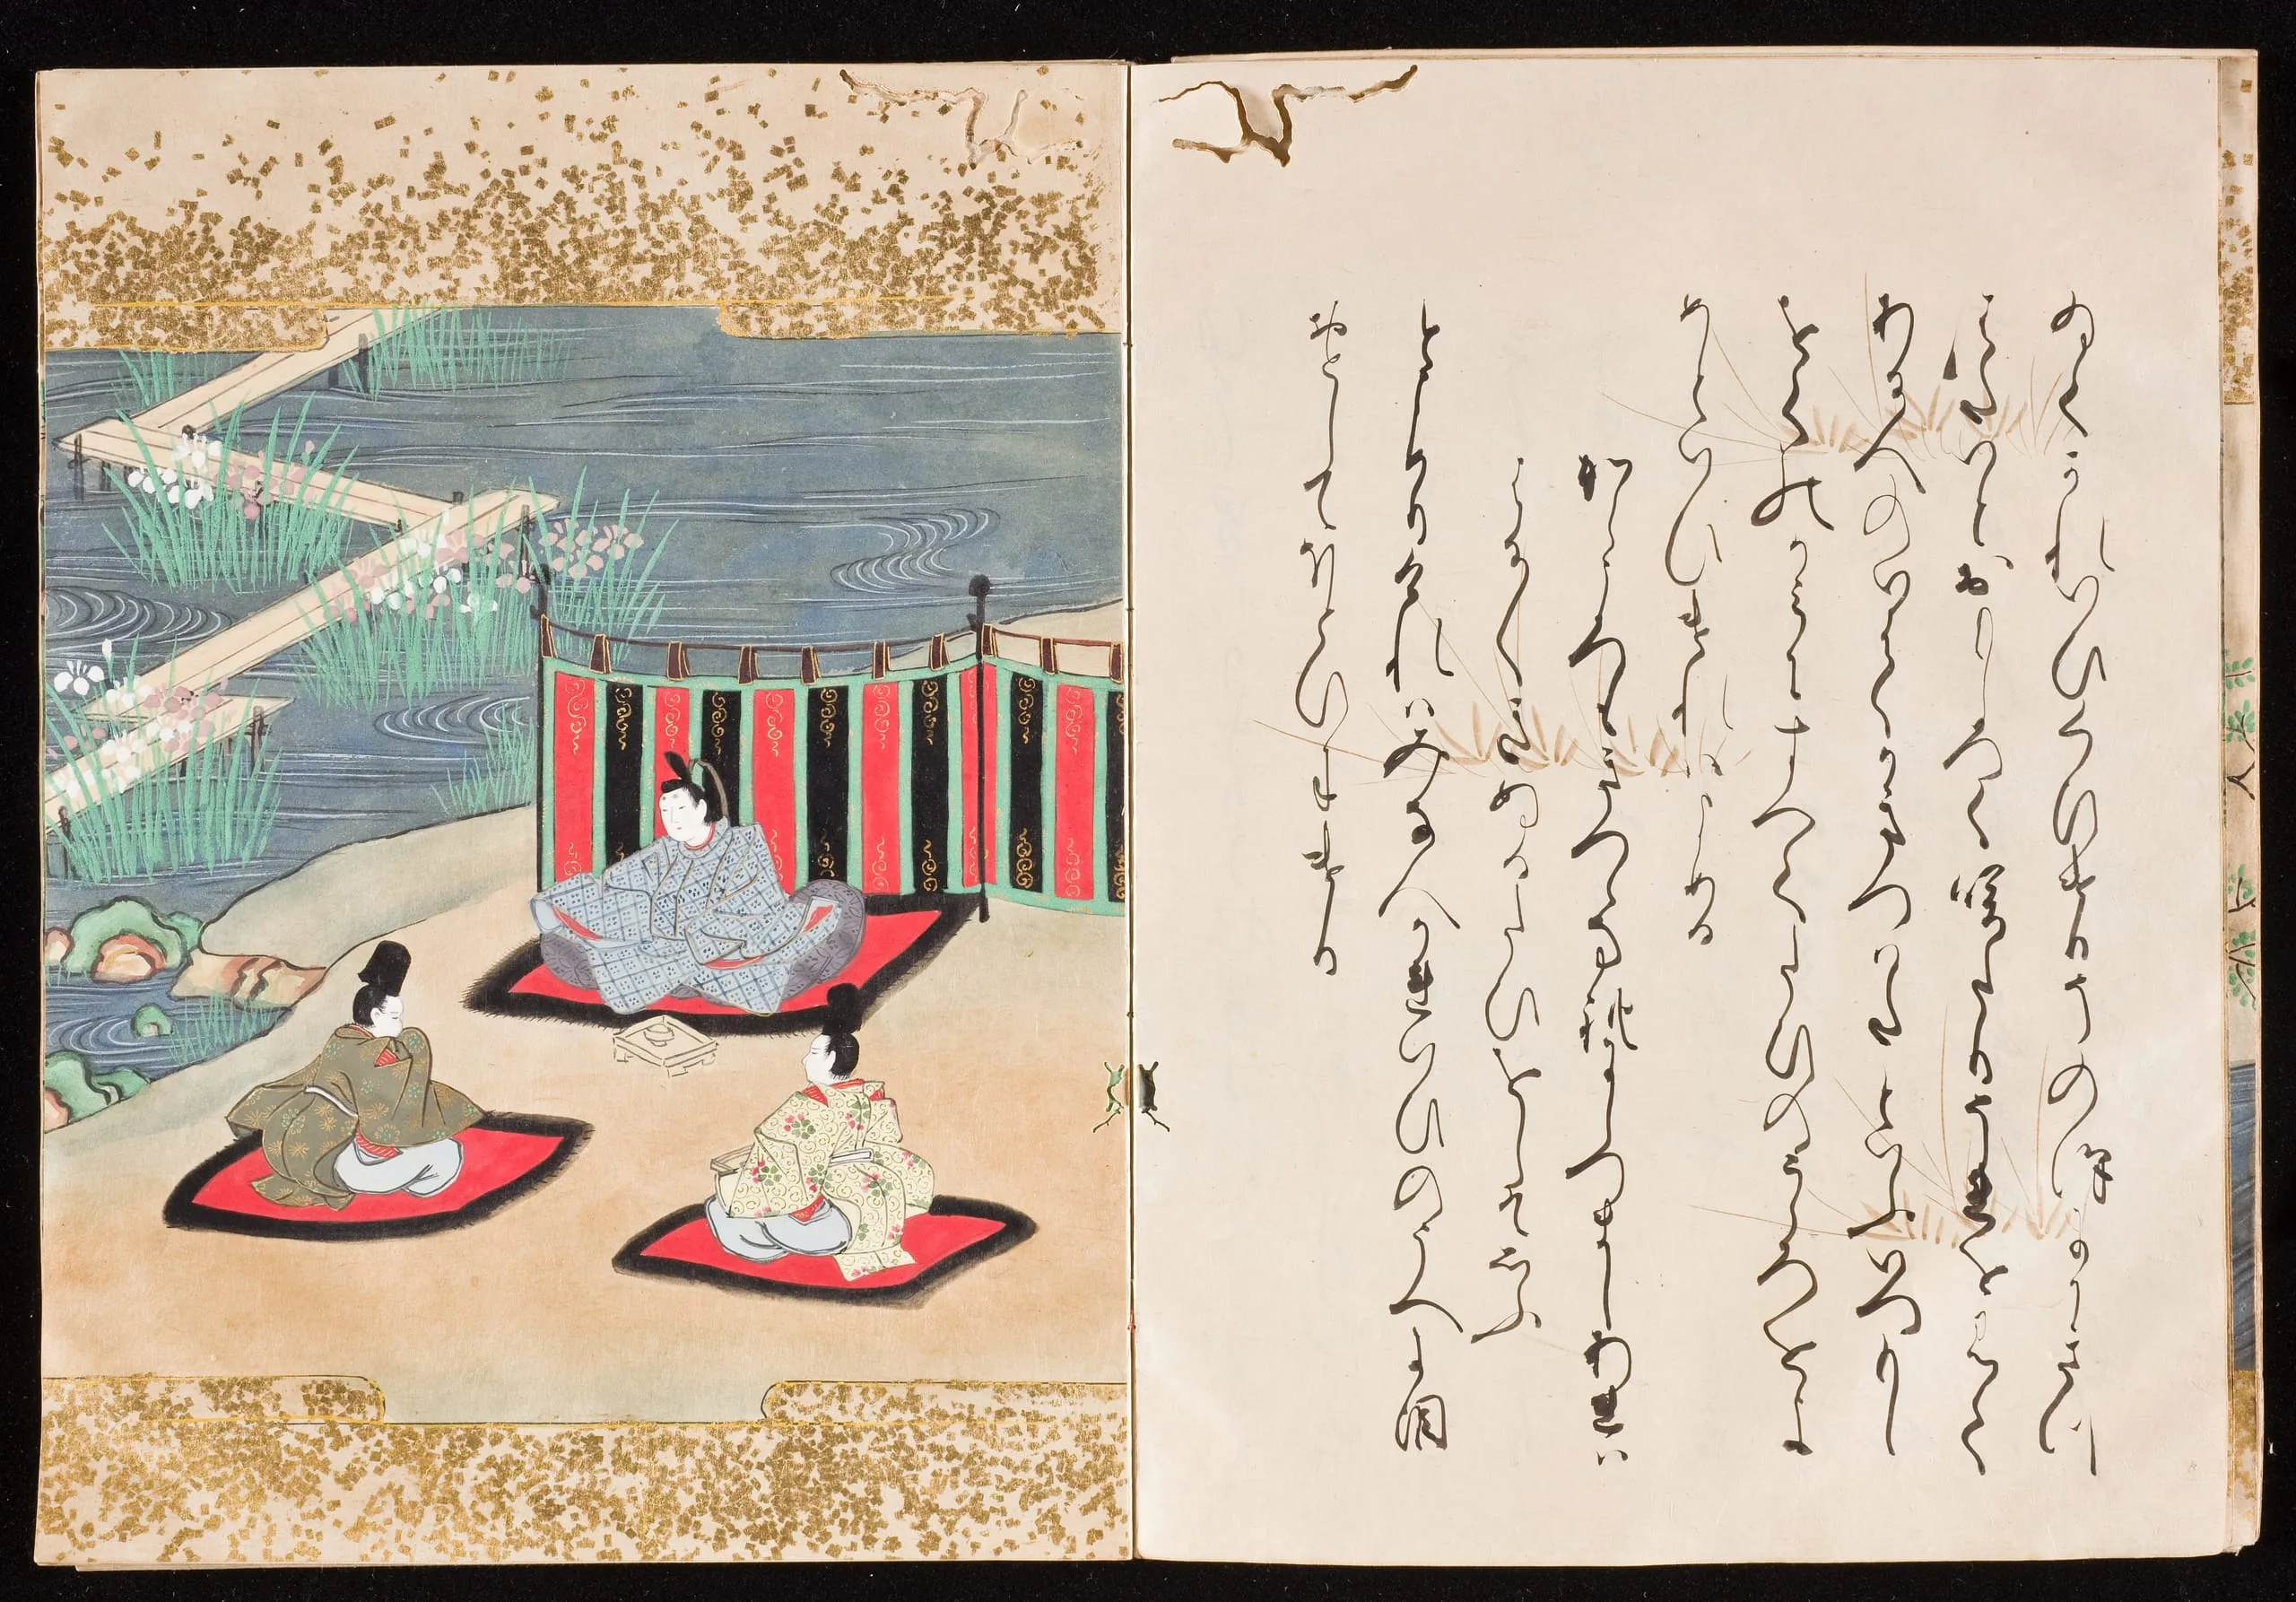 ゐてかれいひくひけりそのさはにかき
つはたいとおもしろくさきたりそれをみて
ある人のいはくかきつはたといふいつもし
をくのかみにすへてたひのこゝろをよ
めといひけれはよめる
からころもきつゝなれにしつましあれは
はる〳〵きぬるたひをしそおもふ
とよめりけれはみな人かれいひのうへに涙
おとしてほとひにけり